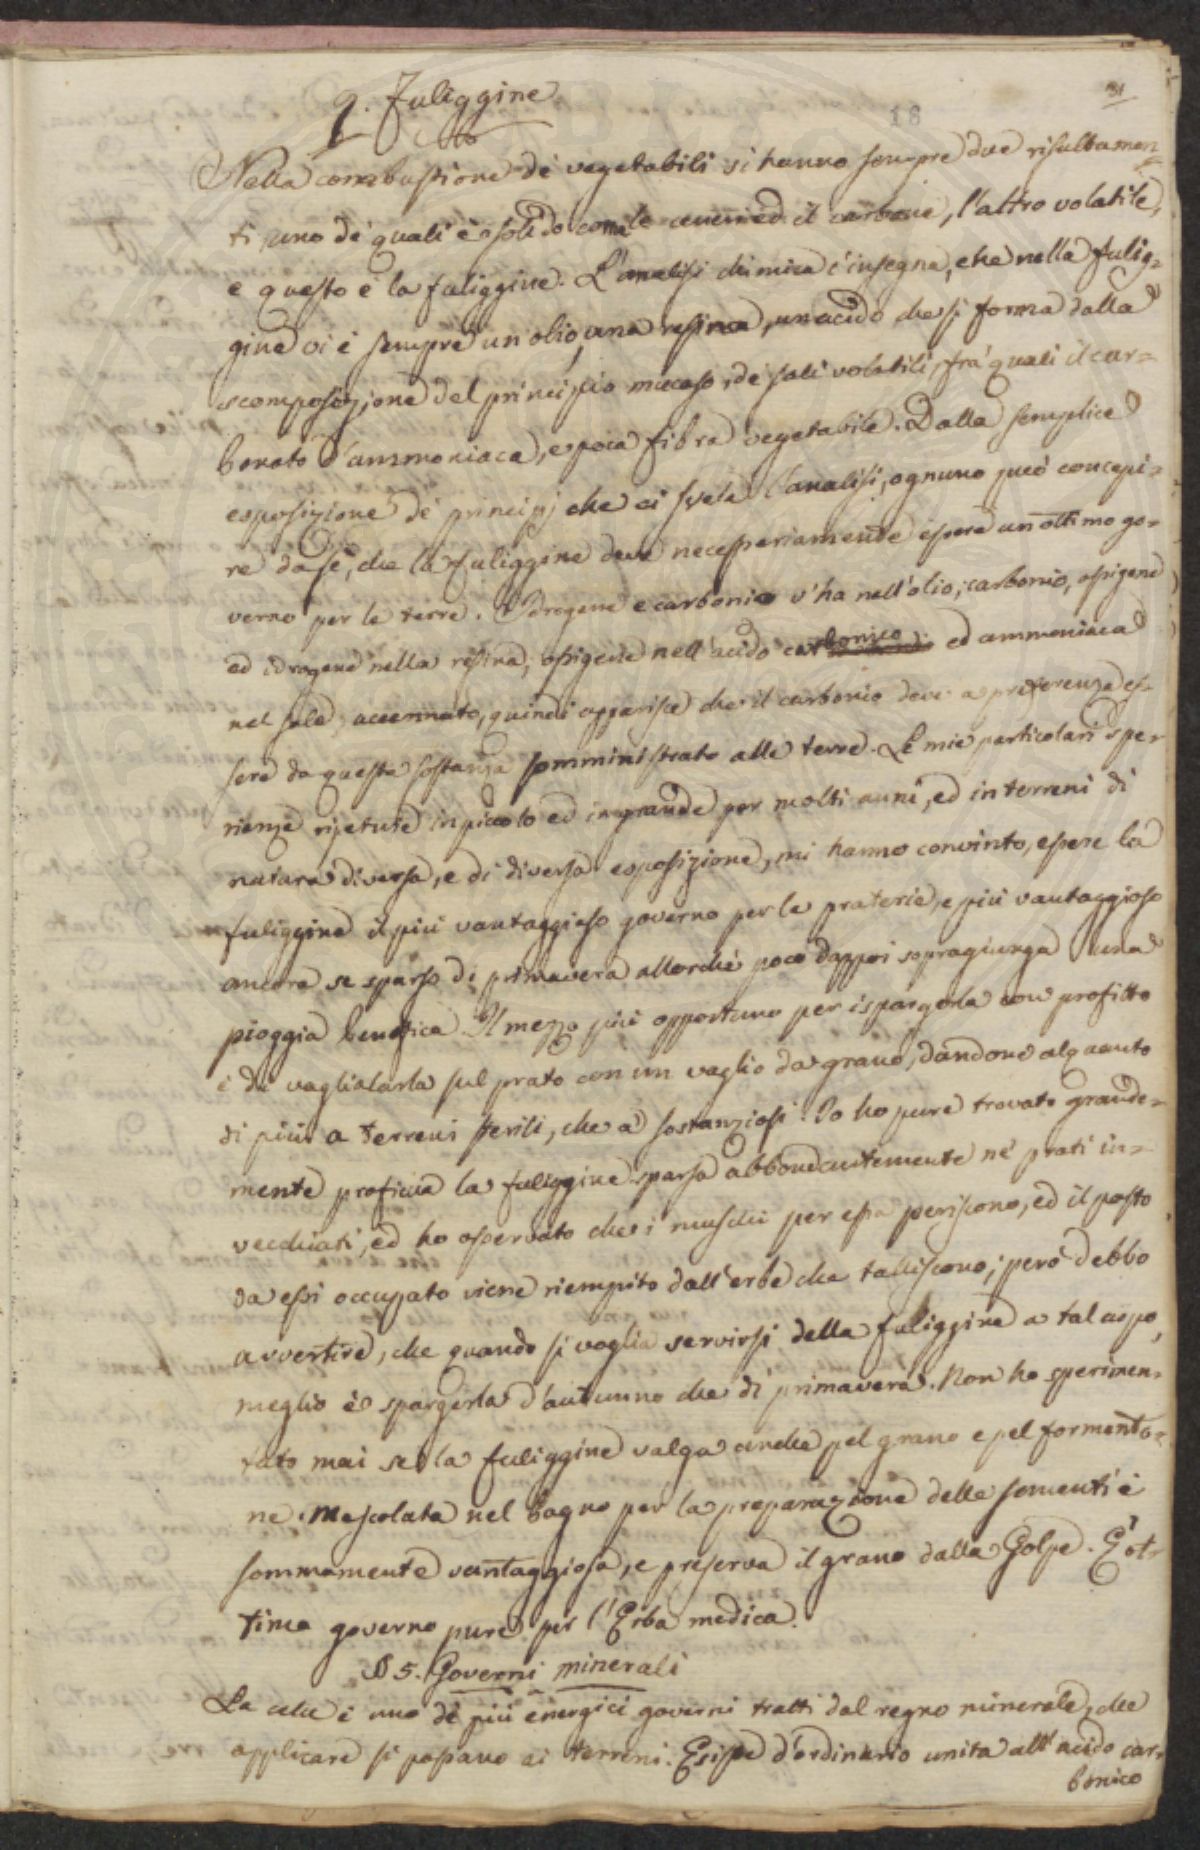 31
18
9. Fuliggine
Nella combustione de' vegetabili si hanno sempre due risultamen=
ti, uno de' quali è solido come le ceneri ed il carbone, l'altro volatile,
e questo è la fuliggine. L'analisi chimica c'insegna, che nella fulig=
gine vi è sempre un olio, una resina, un acido che si forma dalla
scomposizione del principio mucoso, de' sali volatili, fra' quali il car=
bonato d'ammoniaca, e poca fibra vegetabile. Dalla semplice
esposizione de' principj che ci svela l'analisi, ognuno può concepi=
re da se, che la fuliggine deve necessariamente essere un ottimo go=
verno per le terre. Idrogene e carbonio v'ha nell'olio; carbonio, ossigene
ed idrogene nella resina; ossigene nell'acido carbonico ed ammoniaca
nel sale accennato, quindi apparisce che il carbonio deve a preferenza es=
sere da questa sostanza somministrato alle terre. Le mie particolari spe=
rienze ripetute in piccolo ed in grande per molti anni, ed in terreni di
natura diversa, e di diversa esposizione, mi hanno convinto, essere la
fuliggine il più vantaggioso governo per le praterie, e più vantaggioso
ancora se sparso di primavera allorchè poco dappoi sopragiunga una
pioggia benefica. Il mezzo più opportuno per ispargerla con profitto
è di vagliarla sul prato con un vaglio da grano, dandone alquanto
di più a terreni sterili, che a' sostanziosi. Io ho pure trovato grande=
mente proficua la fuliggine sparsa abbondantemente ne' prati in=
vecchiati, ed ho osservato che i muschi per essa periscono, ed il posto
da essi occupato viene riempito dall'erbe che talliscono; però debbo
avvertire, che quando si voglia servirsi della fuliggine a tal uopo,
meglio è spargerla d'autunno che di primavera. Non ho sperimen=
tato mai se la fuliggine valga anche pel grano e pel formento=
ne. Mescolata nel bagno per la preparazione delle sementi è
sommamente vantaggiosa, e preserva il grano dalla Golpe. È ot=
timo governo pure per l'Erba medica.
§ 5. Governi minerali
La calce è uno de' più energici governi tratti dal regno minerale, che
applicare si possano ai terreni. Esiste d'ordinario unita all'acido car=
bonico